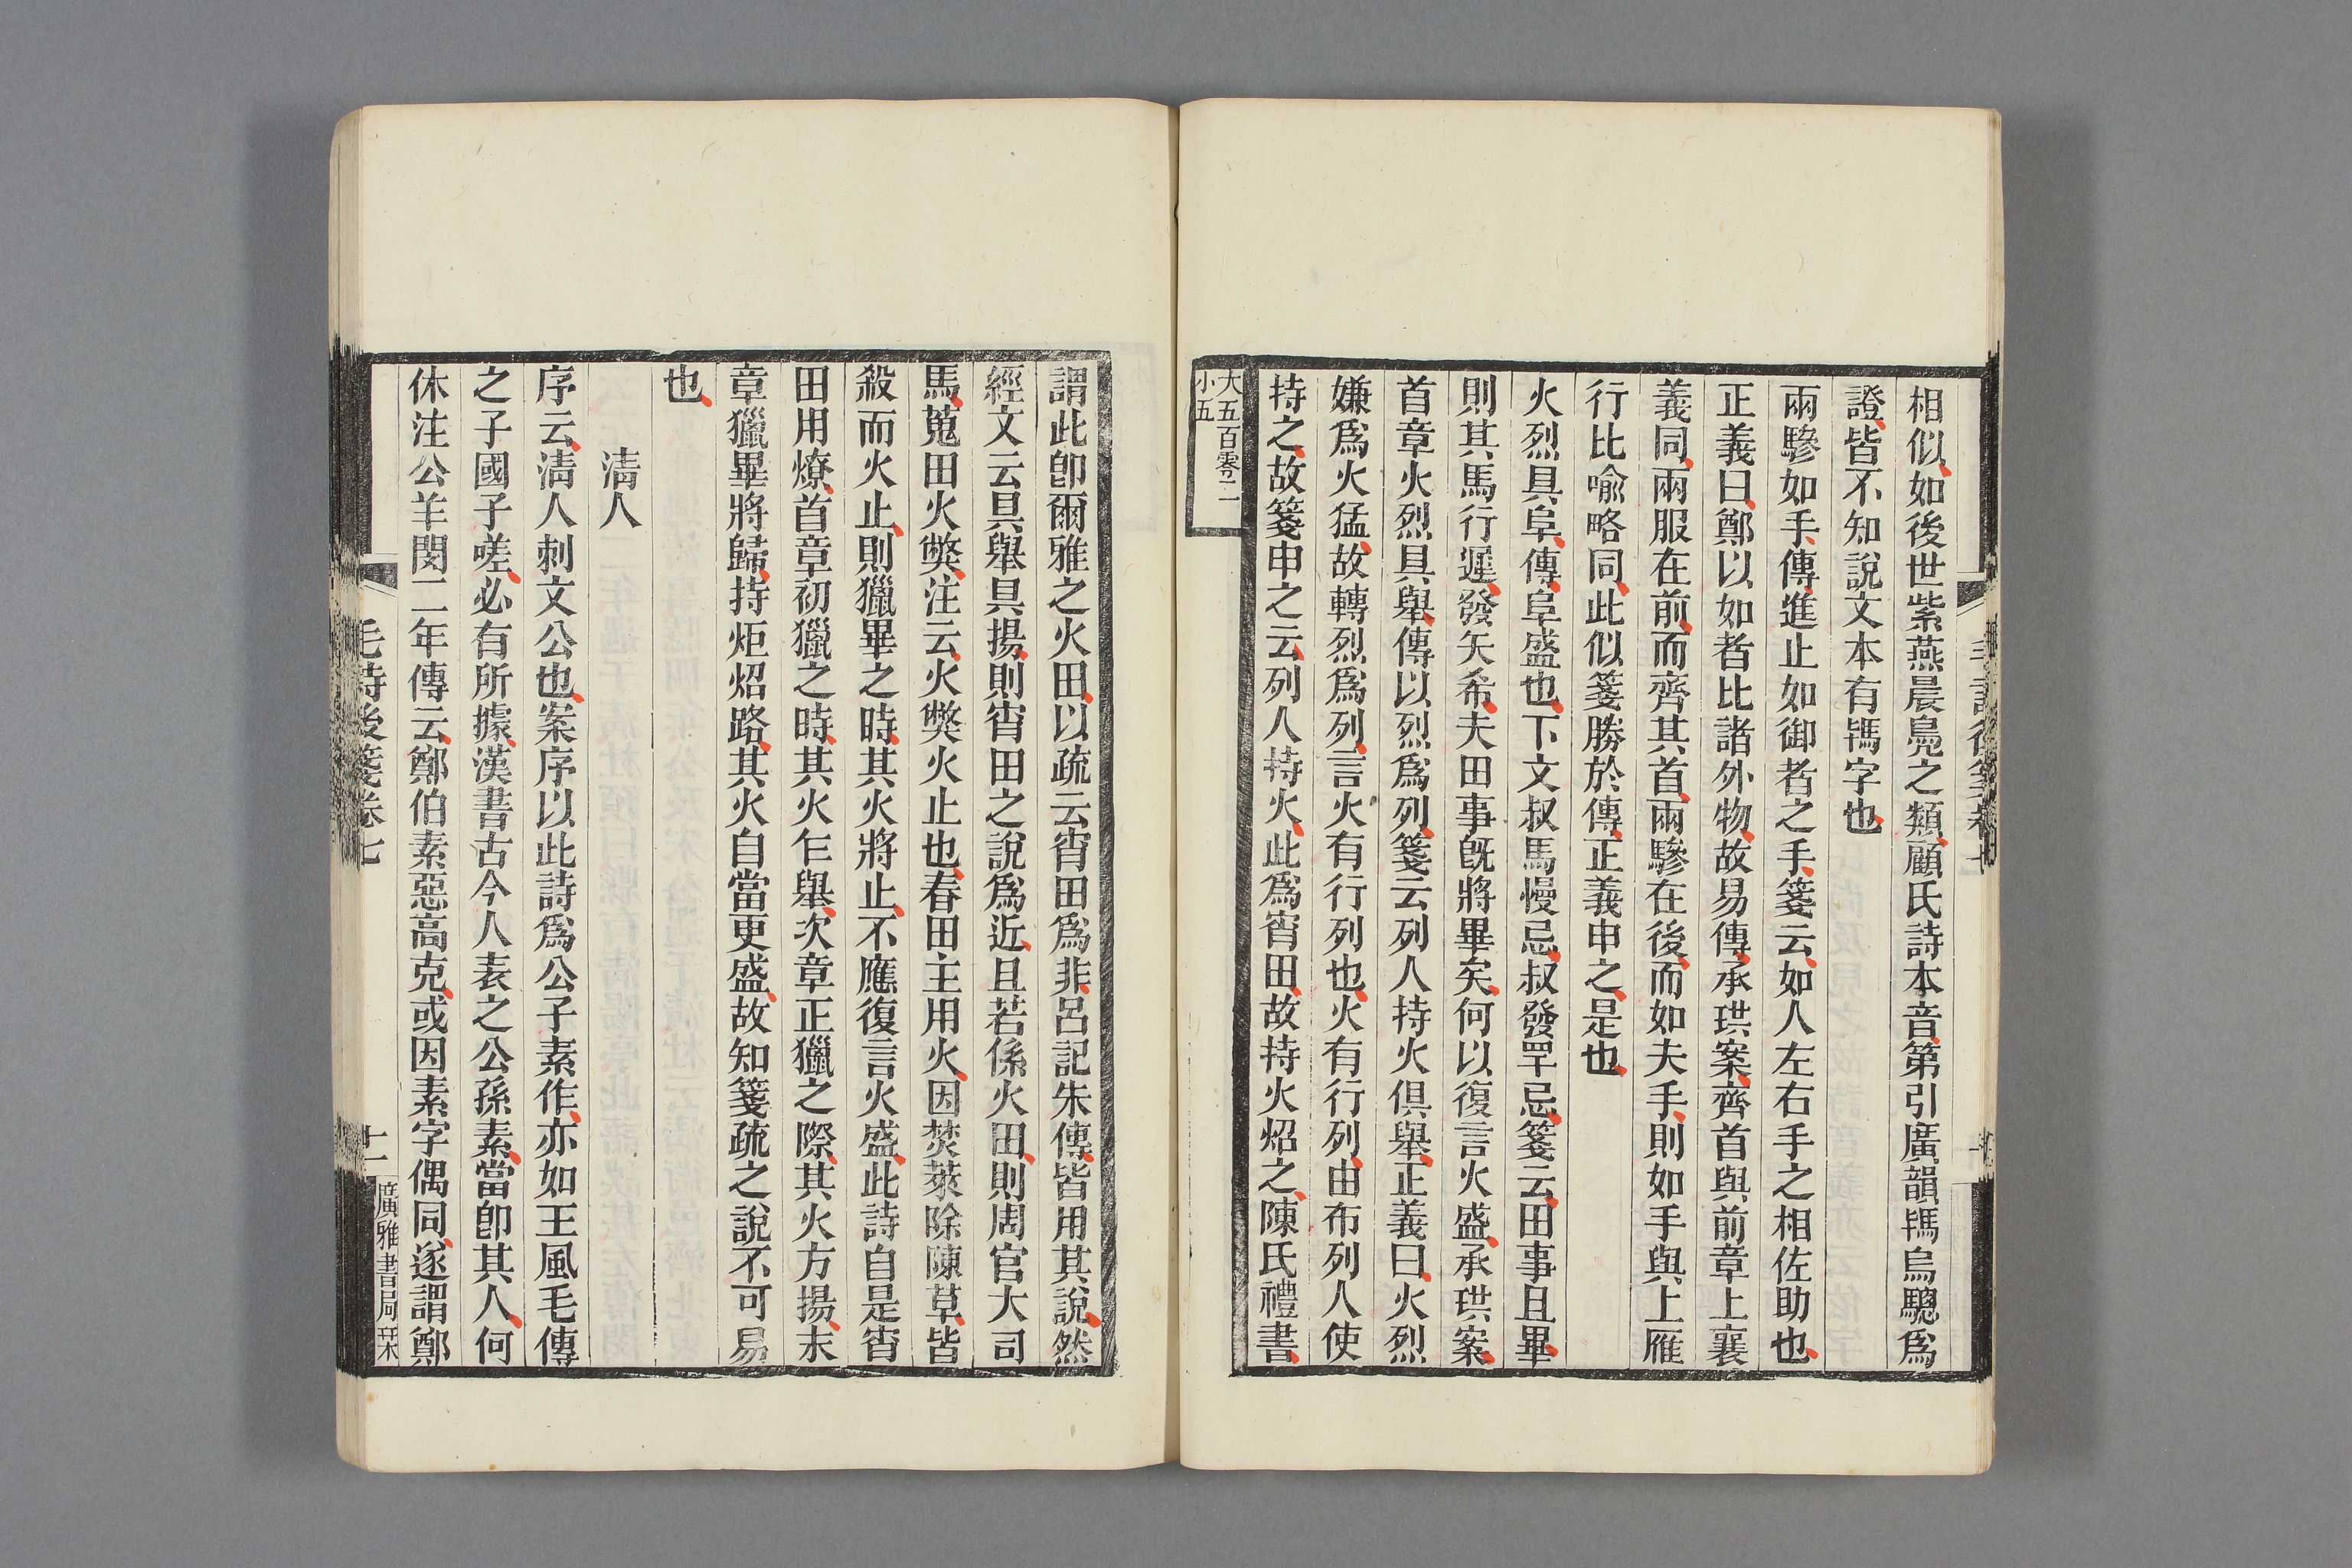 相似如後世紫燕晨鳧之類顧氏詩本音第引廣韻䮸烏驄爲
證皆不知說文本有䮸字也
兩驂如手傳進止如御者之手箋云如人左右手之相佐助也
正義曰鄭以如者比諸外物故易傳承珙案齊首與前章上襄
義同兩服在前而齊其首兩驂在後而如夫手則如手與上雁
行比喻略同此似箋勝於傳正義申之是也
火烈具阜傳阜盛也下文叔馬慢忌叔發罕忌箋云田事且畢
則其馬行遲發矢希夫田事旣將畢矣何以復言火盛承珙案
首章火烈具舉傳以烈爲列箋云列人持火俱舉正義曰火烈
嫌爲火猛故轉烈爲列言火有行列也火有行列由布列人使
持之故箋申之云列人持火此爲宵田故持火炤之陳氏禮書
大五百零二
小五
謂此卽爾雅之火田以疏云宵田爲非呂記朱傳皆用其說然
經文云具舉具揚則宵田之說爲近且若係火田則周官大司
馬蒐田火獘注云火獘火止也春田主用火因焚萊除陳草皆
殺而火止則獵畢之時其火將止不應復言火盛此詩自是宵
田用燎首章初獵之時其火乍舉次章正獵之際其火方揚末
章獵畢將歸持炬炤路其火自當更盛故知箋疏之說不可易
也
清人
序云清人刺文公也案序以此詩爲公子素作亦如王風毛傳
之子國子嗟必有所據漢書古今人表之公孫素當卽其人何
休注公羊閔二年傳云鄭伯素惡高克或因素字偶同遂謂鄭
毛詩後箋卷七
十一
廣雅書局栞